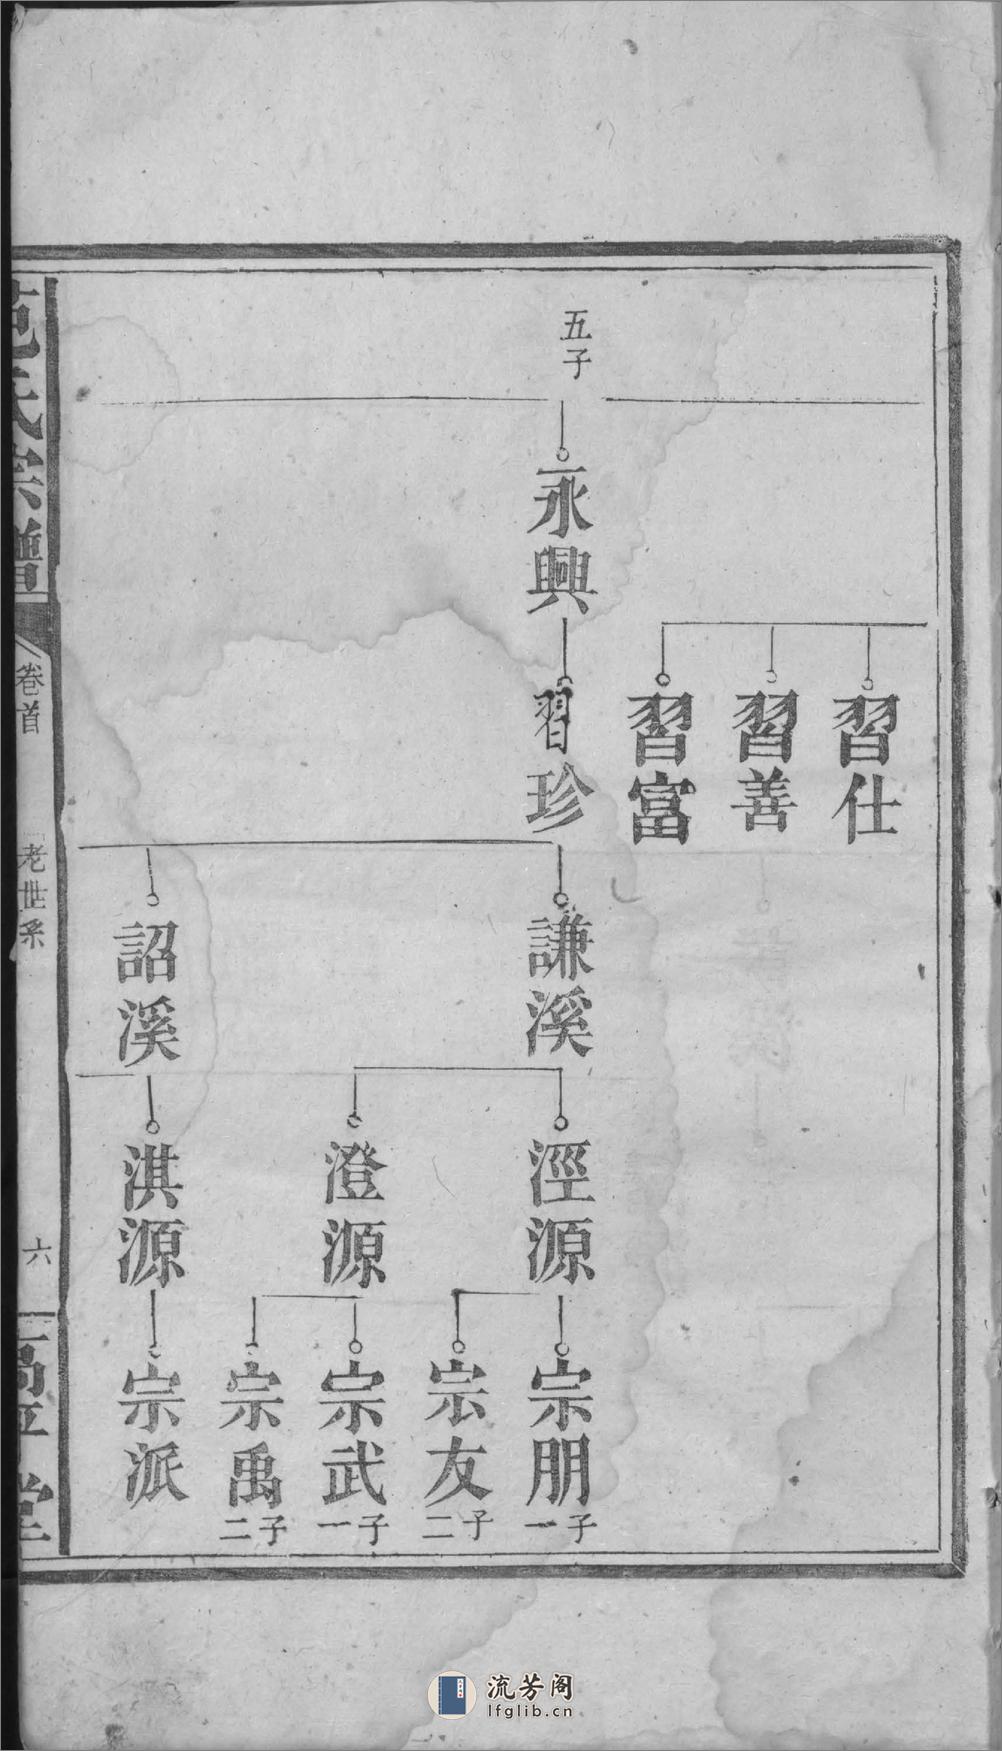 五子
永興
習仕
習善
習富
習珍
謙溪
詔溪
涇源
澄源
淇源
宗朋
一子
宗友
二子
宗武
一子
宗禹
二子
宗派
氏宗譜
卷首
老世系
六
堂
流芳阁
lfglib.cn